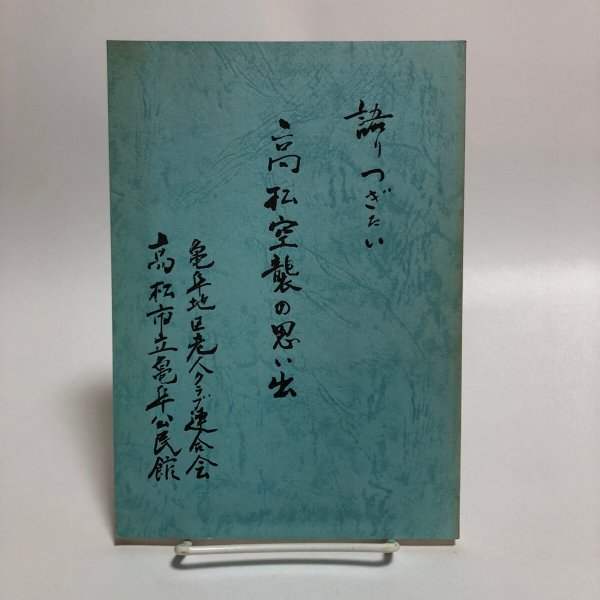 語りつぎたい
高松空襲の思い出
亀阜地区老人クラブ連合会
高松市立亀阜公民館